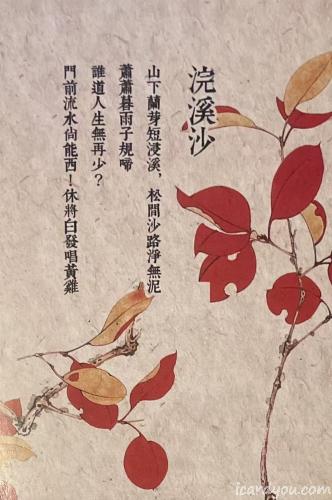 浣溪沙
山下蘭芽短浸溪，松間沙路淨無泥
蕭蕭暮雨子規啼
誰道人生無再少？
門前流水尚能西！休將白發唱黃雞
icareyou.com